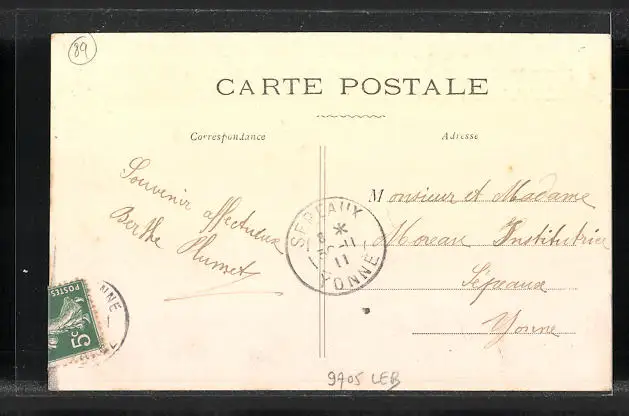 89
CARTE POSTALE
Correspondance
Adresse
Souvenir affectueux
Berthe Plumet
Monsieur et Madame
Moreau Institutrice
Sépeaux
Yonne
SEPEAUX
8 *
30-11
11
YONNE
NNE
POSTES
5c
9405 LEB